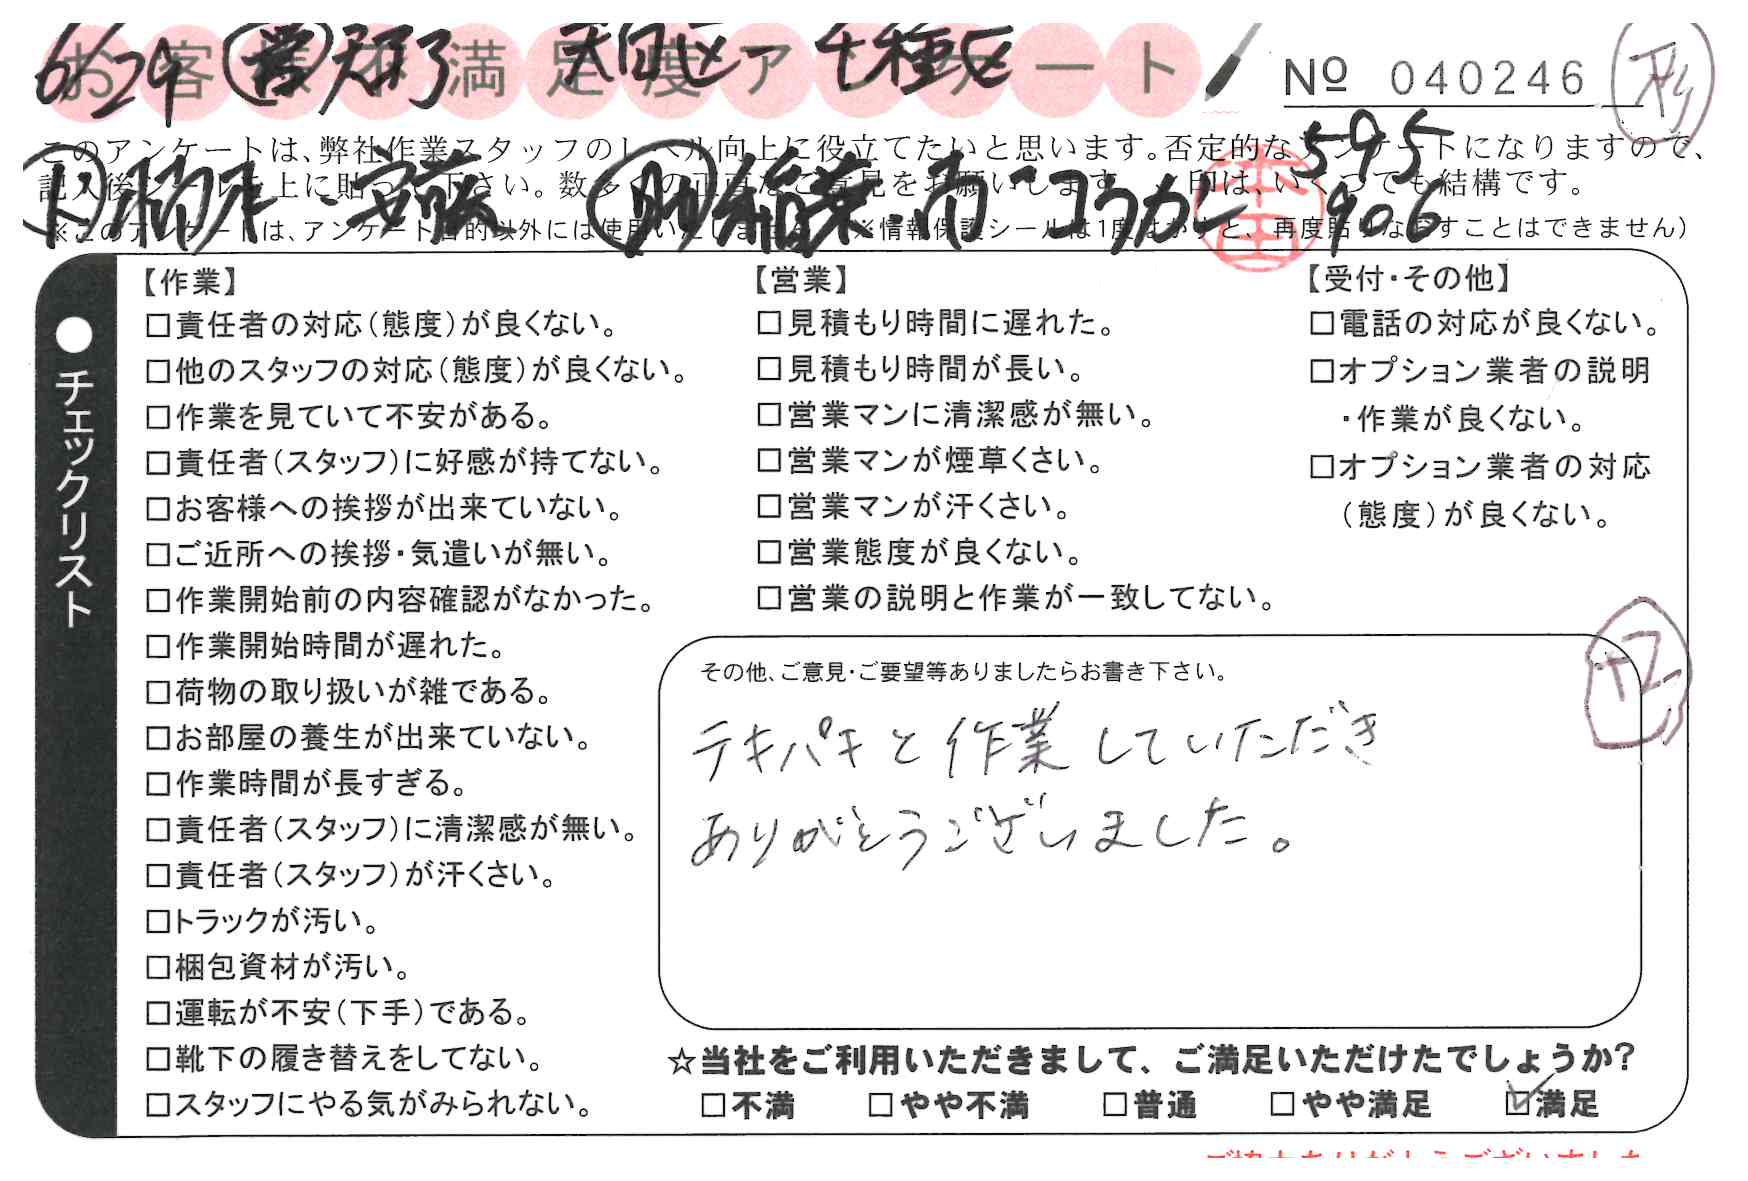 6/29 営 天白区 千種区
お客様不満足度アンケート
Nº 040246
杉
このアンケートは、弊社作業スタッフのレベル向上に役立てたいと思います。否定的なアンケートになりますので、
595
記入後シールを上に貼って下さい。数多くの正直なご意見をお願いします。 印は、いくつでも結構です。
本田
906
※このアンケートは、アンケート目的以外には使用いたしません。(※情報保護シールは1度はがすと、再度貼りなおすことはできません)
●チェックリスト
【作業】
□責任者の対応(態度)が良くない。
□他のスタッフの対応(態度)が良くない。
□作業を見ていて不安がある。
□責任者(スタッフ)に好感が持てない。
□お客様への挨拶が出来ていない。
□ご近所への挨拶・気遣いが無い。
□作業開始前の内容確認がなかった。
□作業開始時間が遅れた。
□荷物の取り扱いが雑である。
□お部屋の養生が出来ていない。
□作業時間が長すぎる。
□責任者(スタッフ)に清潔感が無い。
□責任者(スタッフ)が汗くさい。
□トラックが汚い。
□梱包資材が汚い。
□運転が不安(下手)である。
□靴下の履き替えをしてない。
□スタッフにやる気がみられない。
【営業】
□見積もり時間に遅れた。
□見積もり時間が長い。
□営業マンに清潔感が無い。
□営業マンが煙草くさい。
□営業マンが汗くさい。
□営業態度が良くない。
□営業の説明と作業が一致してない。
【受付・その他】
□電話の対応が良くない。
□オプション業者の説明
・作業が良くない。
□オプション業者の対応
(態度)が良くない。
その他、ご意見・ご要望等ありましたらお書き下さい。
テキパキと作業していただき
ありがとうございました。
☆当社をご利用いただきまして、ご満足いただけたでしょうか?
□不満 □やや不満 □普通 □やや満足 ☑満足
ご協力ありがとうございました